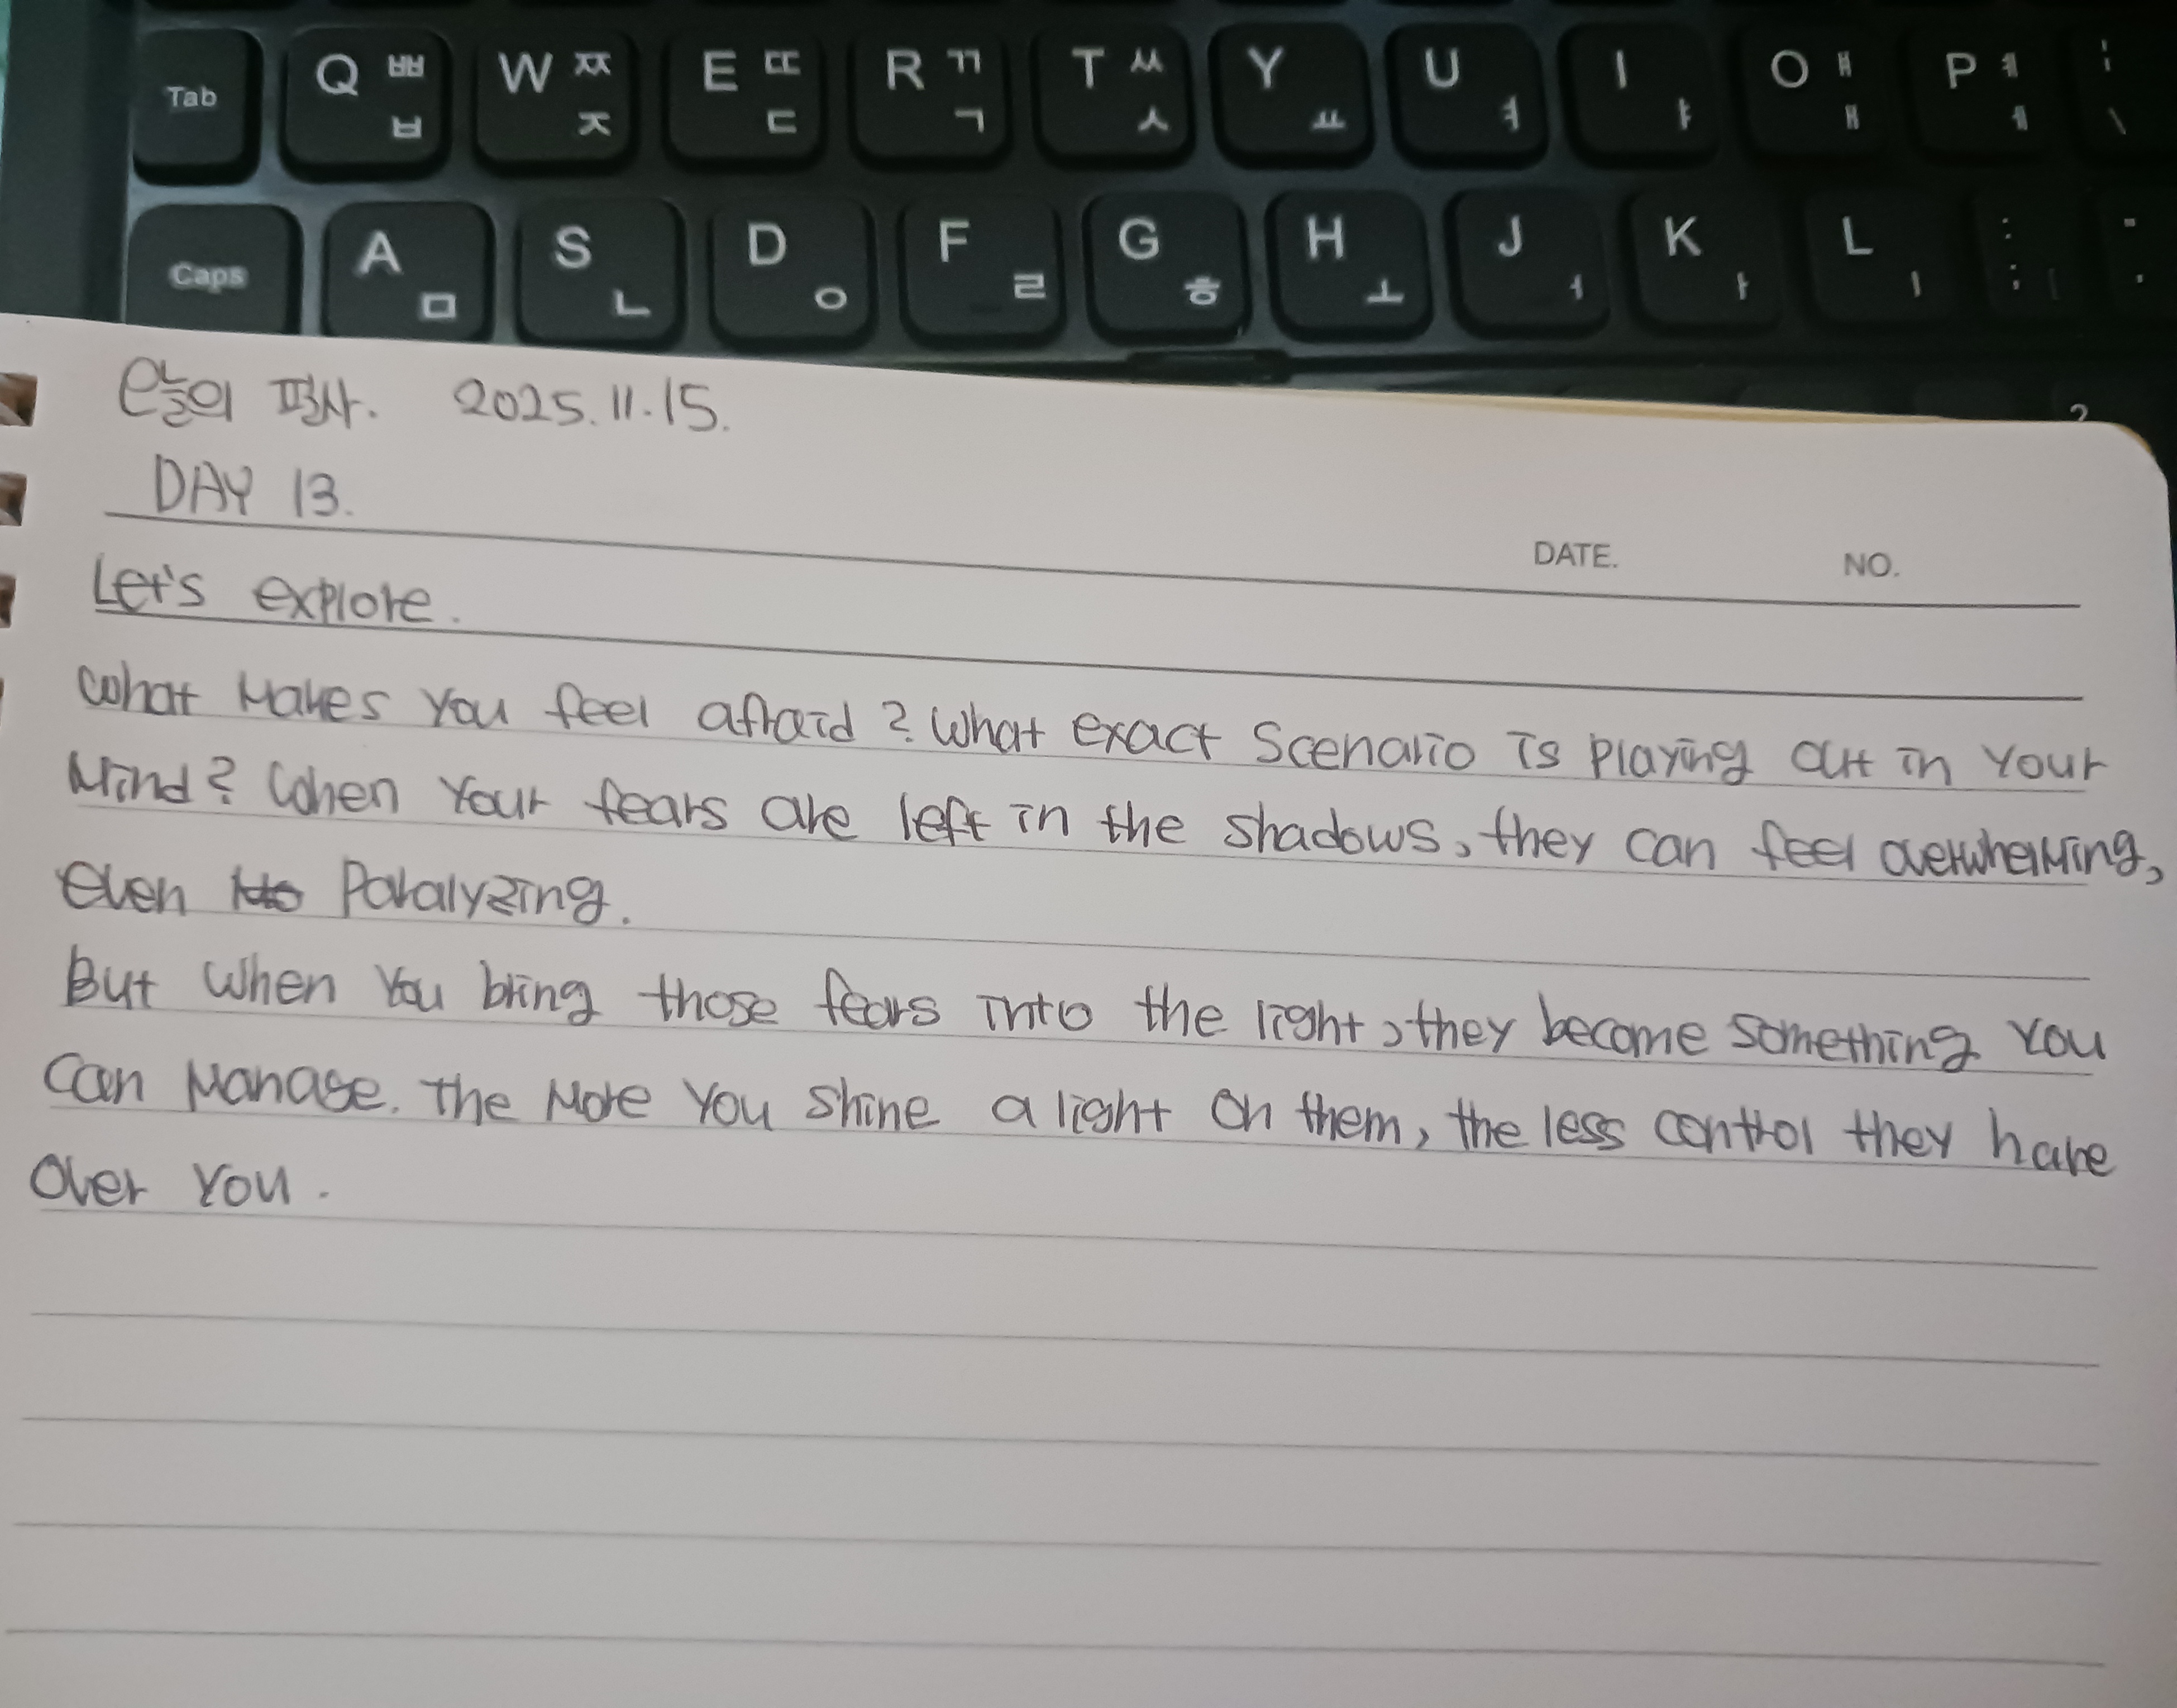 Tab Q ㅃ ㅂ W ㅉ ㅈ E ㄸ ㄷ R ㄲ ㄱ T ㅆ ㅅ Y ㅛ U ㅕ I ㅑ O ㅒ ㅐ P ㅖ ㅔ
Caps A ㅁ S ㄴ D ㅇ F ㄹ G ㅎ H ㅗ J ㅓ K ㅏ L ㅣ : ; " '
?
오늘의 필사. 2025.11.15.
DAY 13.
DATE. NO.
Let's explore.
What Makes You feel afraid? What exact Scenario is Playing out in Your
Mind? When Your fears are left in the shadows, they can feel overwhelming,
even Paralyzing.
But when You bring those fears into the light, they become something You
Can Manage. The More You shine a light on them, the less control they have
Over You.